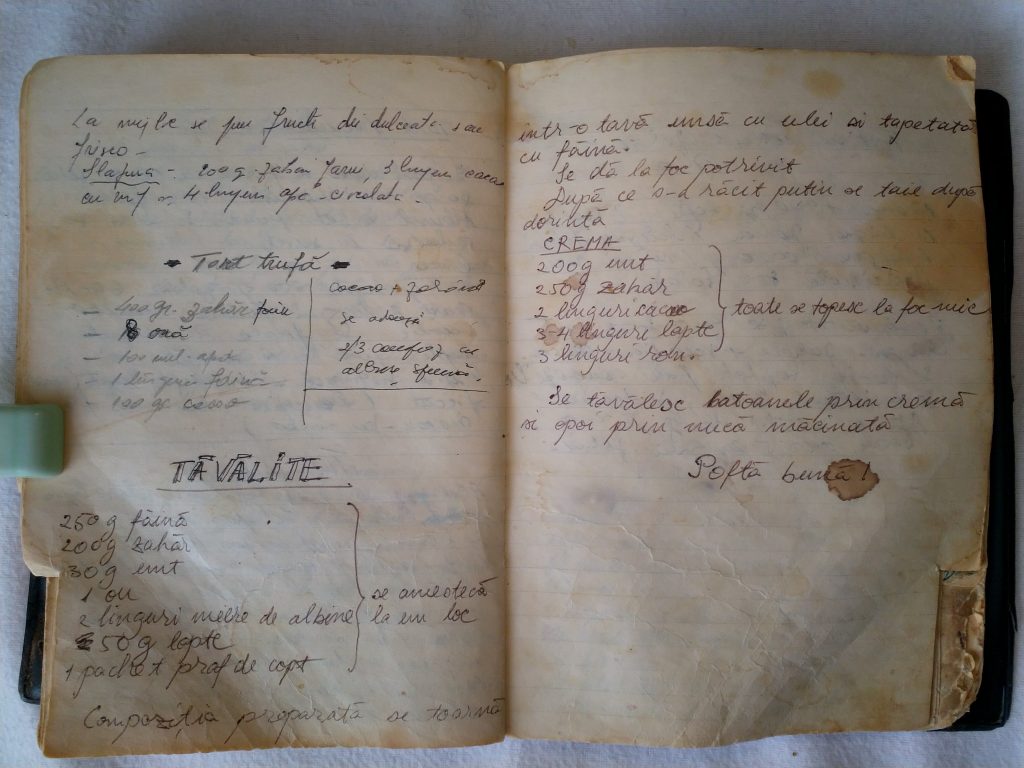 La mijloc se pun fructe din dulceată sau
frisco -
Glazura - 200 g zahăr farin, 3 linguri cacao
cu vârf 4 linguri apă - ciocolata -
- Tort trufă -
- 400 gr. zahăr
- 8 ouă
- 100 mil. apă
- 1 lingură făină
- 100 gr. cacao
cacao + zahărul
se adaugă
2/3 cu
albuș spumă.
TĂVĂLITE
250 g făină
200 g zahăr
30 g unt
1 ou
2 linguri miere de albine
50 g lapte
1 pachet praf de copt
se amestecă
la un loc
Compoziția preparată se toarnă
într-o tavă unsă cu ulei și tapetată
cu făină.
Se dă la foc potrivit
După ce s-a răcit puțin se taie după
dorință
CREMA
200 g unt
250 g zahăr
2 linguri cacao
3-4 linguri lapte
3 linguri rom.
toate se topesc la foc mic
Se tăvălesc batoanele prin cremă
și apoi prin nucă măcinată
Poftă bună!